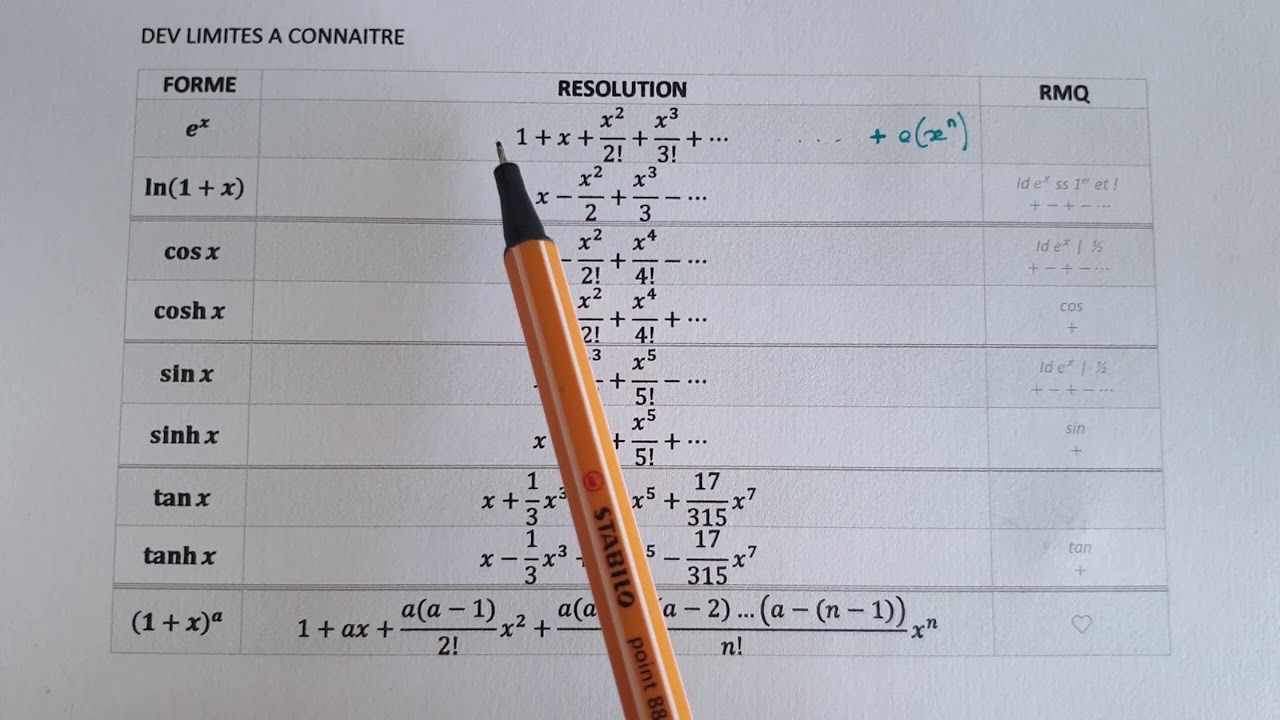 DEV LIMITES A CONNAITRE
FORME RESOLUTION RMQ
eˣ 1 + x + x²/2! + x³/3! + ⋯ .... + o(xⁿ)
ln(1 + x) x − x²/2 + x³/3 − ⋯ Id eˣ ss 1ᵉʳ et !
+ − + − ⋯
cos x − x²/2! + x⁴/4! − ⋯ Id eˣ | ½
+ − + − ⋯
cosh x x²/2! + x⁴/4! + ⋯ cos
+
sin x + x⁵/5! − ⋯ Id eˣ | ½
+ − + − ⋯
sinh x x + x⁵/5! + ⋯ sin
+
tan x x + 1/3 x³ x⁵ + 17/315 x⁷
tanh x x − 1/3 x³ − 17/315 x⁷ tan
+
(1 + x)ᵃ 1 + ax + a(a − 1)/2! x² + a(a (a − 2) … (a − (n − 1))/n! xⁿ ♡
STABILO point 88